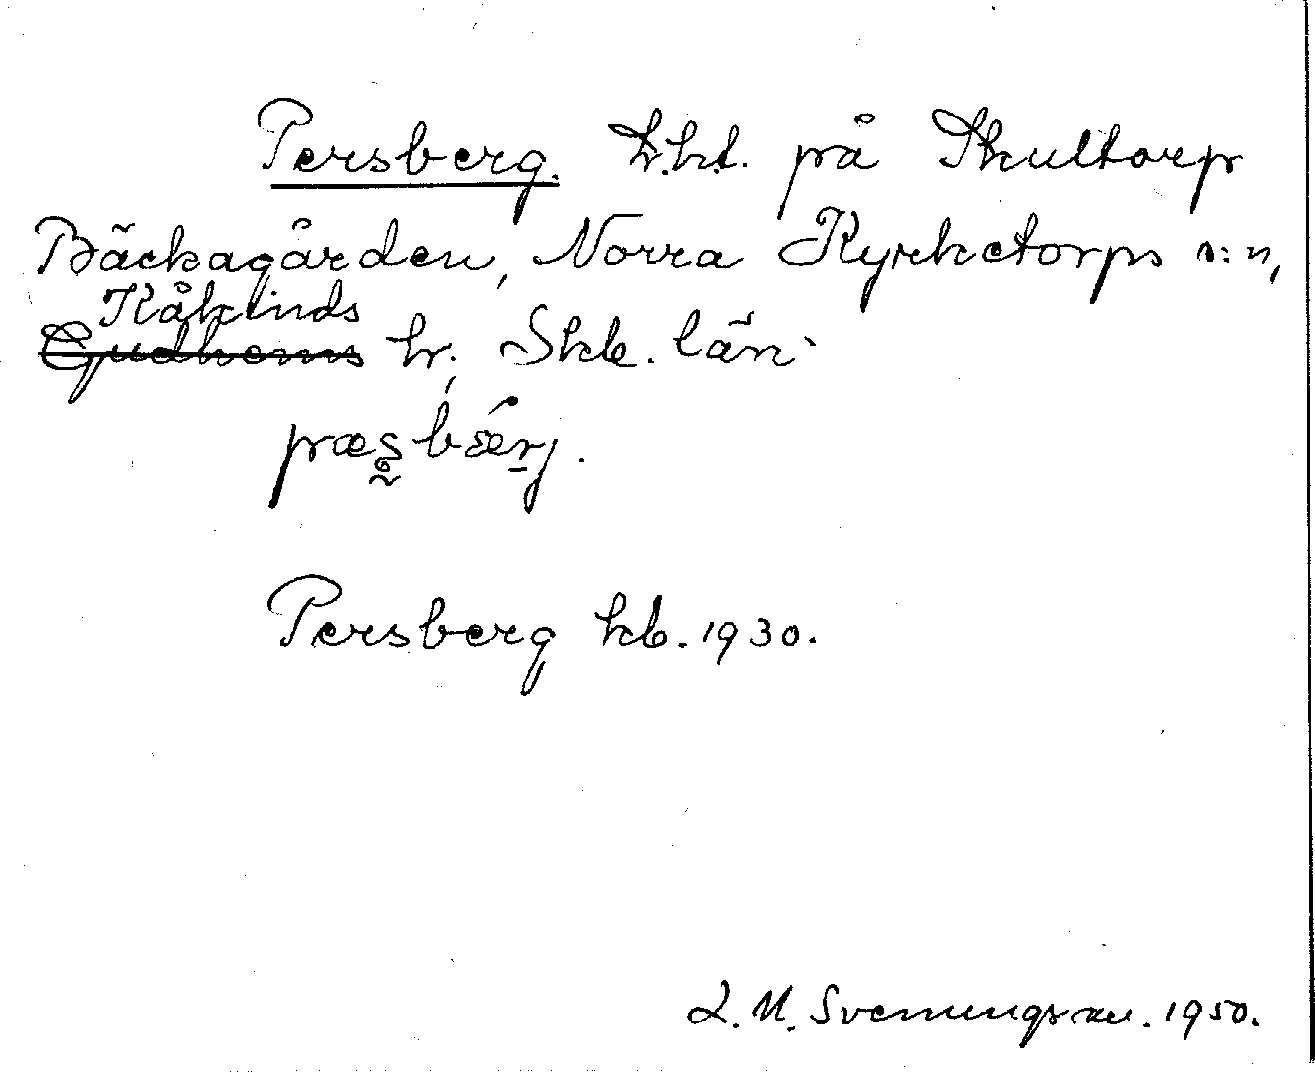 Persberg. t.ht. på Skultorp
Bäckagården, Norra Kyrketorps s:n,
Kåkinds
Gudhems hr, Skb. län
Persberg kb. 1930.
Svenungsson. 1950.